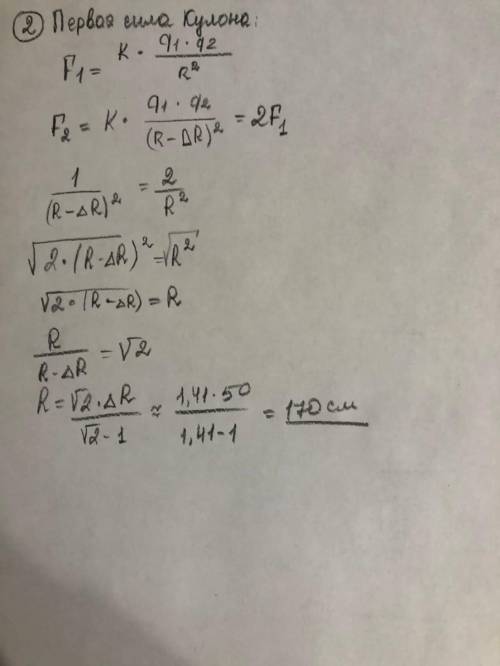 ② Первая сила Кулона:
F₁ = K · q₁ · q₂ / R²
F₂ = K · q₁ · q₂ / (R - ΔR)² = 2F₁
1 / (R - ΔR)² = 2 / R²
√2 · (R - ΔR)² = √R²
√2 · (R - ΔR) = R
R / R - ΔR = √2
R = √2 · ΔR / √2 - 1 ≈ 1,41 · 50 / 1,41 - 1 = 170 см